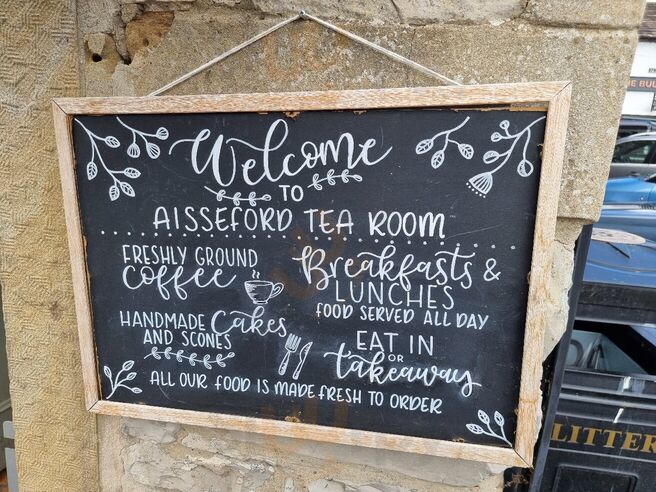 Welcome
TO
AISSEFORD TEA ROOM
FRESHLY GROUND
coffee
Breakfasts &
LUNCHES
FOOD SERVED ALL DAY
HANDMADE Cakes
AND SCONES
EAT IN
OR
takeaway
ALL OUR FOOD IS MADE FRESH TO ORDER
LITTER